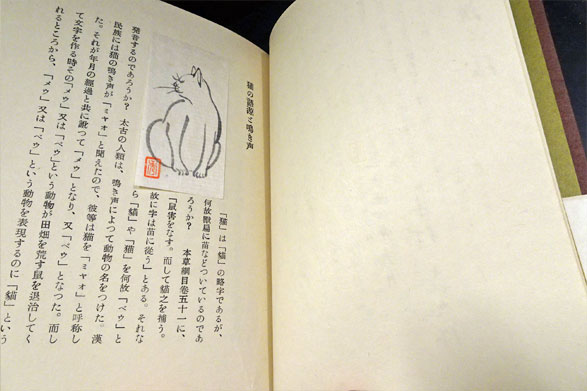 猫の語源と鳴き声
「猫」は「貓」の略字であるが、
何故獣扁に苗などついているのであ
ろうか? 本草綱目巻五十一に、
「鼠害をなす。而して貓之を捕う。
故に字は苗に従う」とある。それな
ら「貓」や「猫」を何故「ベウ」と
発音するのであろうか? 太古の人類は、鳴き声によつて動物の名をつけた。漢
民族には猫の鳴き声が「ミヤオ」と聞えたので、彼等は猫を「ミヤオ」と呼称し
た。それが年月の經過と共に訛つて「メウ」となり、又「ベウ」となつた。而し
て文字を作る時その「メウ」又は「ベウ」という動物が田畑を荒す鼠を退治してく
れるところから、「メウ」又は「ベウ」という動物を表現するのに「貓」という